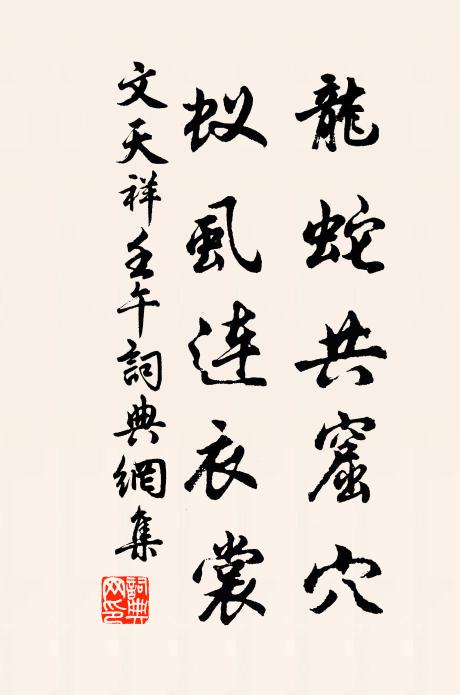 龍蛇共窟穴
蚁虱連衣裳
文天祥壬午詞典網集
詞典网印